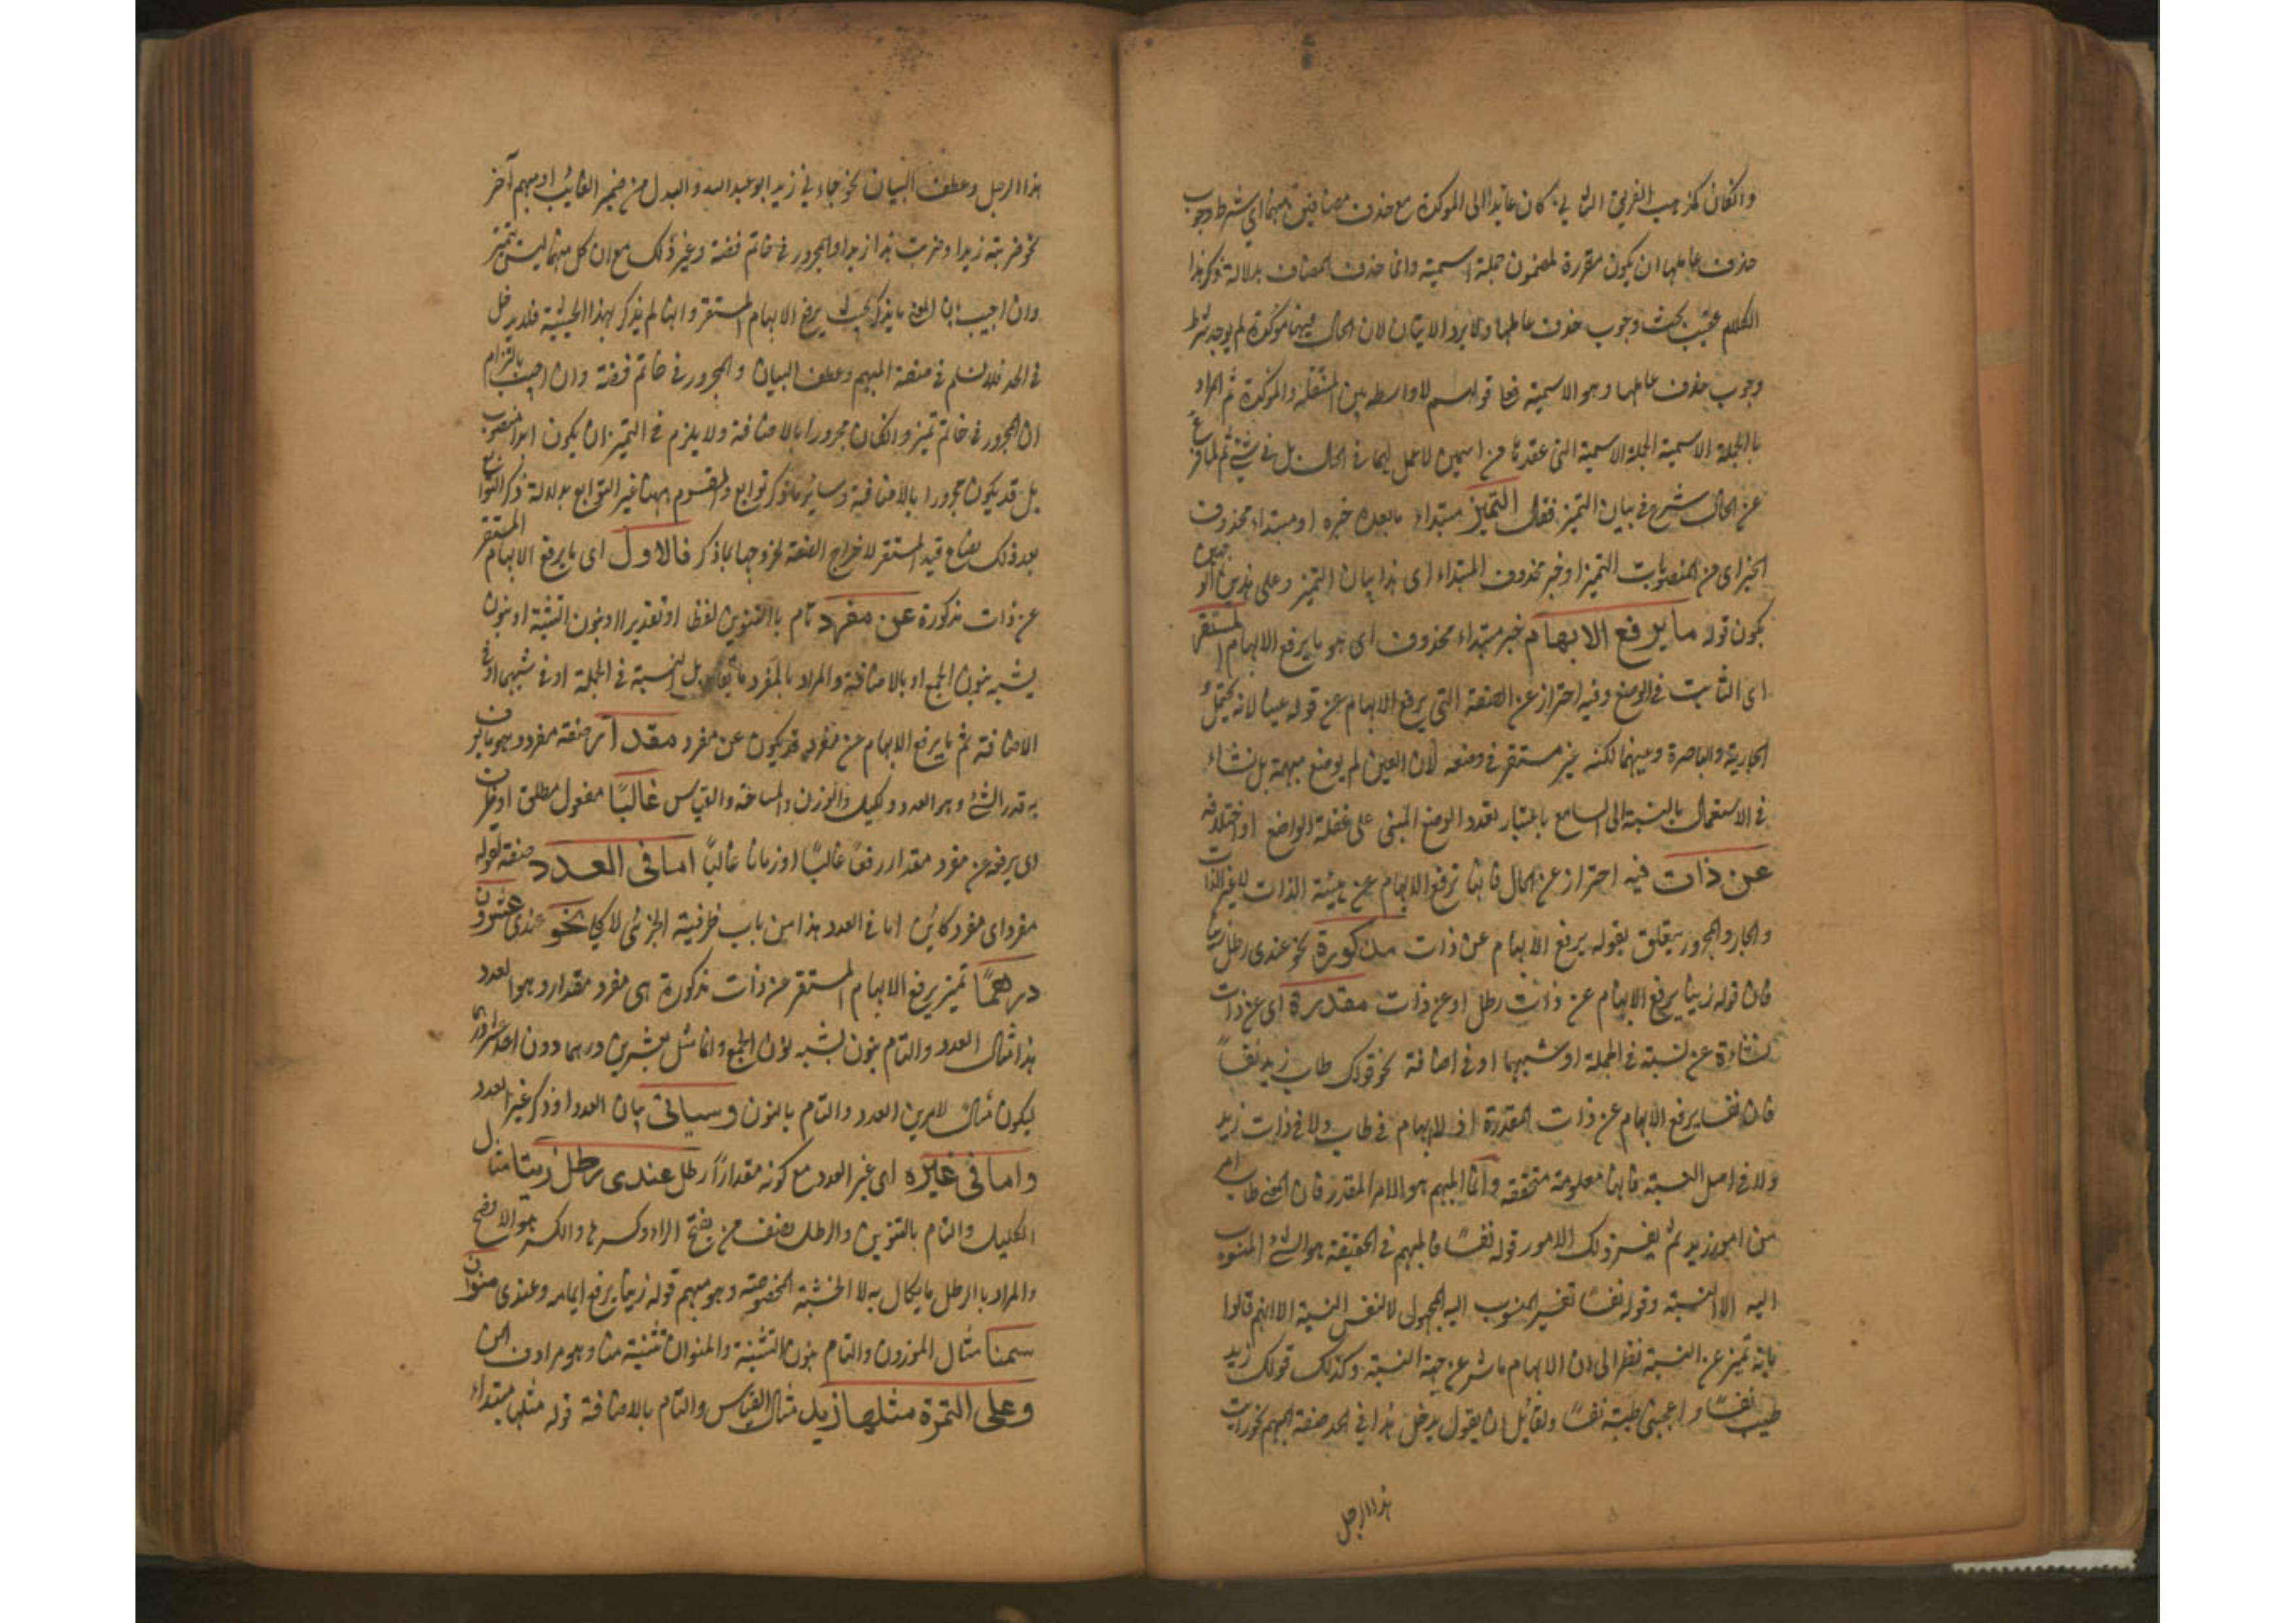 والكان كمذهب الفريق الثاني كان عائدا الى الموكدة مع حذف مضافين منهما اي شرط وجوب
حذف عاملها ان يكون مقررة لمضمون جملة اسمية وانما حذف المضاف بدلالة ذكر هذا
الكلام عقيب بحث وجوب حذف عاملها ولا يرد الايتان لان الحال فيهما موكدة لم يوجد شرط
وجوب حذف عاملها وهو الاسمية فعا قولهم لا واسطه بين المنتقلة والموكدة ثم المراد
با الجملة الاسمية الجملة الاسمية التى عقدتا من اسمين لا عمل لهما فى الحال بل فى شئ ثم لما فرغ
عن الحال شرع فى بيان التميز فقال التميز مبتداء ما بعده خبره او مبتداء محذوف
الخبر اى من المنصوبات التميز او خبر محذوف المبتداء اى هذا بيان التميز وعلى هذين الوجهين
يكون قوله ما يرفع الابهام خبر مبتداء محذوف اى هو ما يرفع الابهام المستقر
اى الثابت فى الوضع وفيه احتراز عن الصفة التى يرفع الابهام عن قوله عينا لانه يحتمل
الجارية والباصرة وغيرهما لكنه غير مستقر فى وضعه لان العين لم يوضع مبهمة بل نشاء
فى الاستعمال بالنسبة الى السامع باعتبار تعدد الوضع المبنى على غفلة الواضع او اختلافه
عن ذات فيه احتراز عن الحال فانها ترفع الابهام عن هيئة الذات لا غير الذات
والجار والمجرور يتعلق بقوله يرفع الابهام عن ذات مذكورة نحو عندى رطل زيتا
فان قوله زيتا يرفع الابهام عن ذات رطل او عن ذات مقدرة اى عن ذات
ناشاءة عن نسبة فى الجملة او شبهها او فى اضافة نحو قولك طاب زيد نفسا
فان نفسا يرفع الابهام عن ذات المقدرة اذ لا ابهام فى طاب ولا فى ذات زيد
ولا فى اصل النسبة فانها معلومة متحققه وانما المبهم هو الامر المقدر فان المعنى طاب امر
من امور زيد ثم يفسر ذلك الامور قوله نفسا فالمبهم فى الحقيقة هو الشئ المنسوب
اليه الا النسبة وقوله نفسا تفسير المنسوب اليه المجهول لا لنفس النسبة الا انهم قالوا
بانه تميز عن النسبة نظرا الى ان الابهام ناش عن جهة النسبة وكذلك قولك زيد
طيب نفسا و اعجبنى طيبه نفسا ولقائل ان يقول يدخل هذا فى الحد صفة المبهم نحو رايت
هذا الرجل
هذا الرجل وعطف البيان نحو جاءني زيد ابو عبد الله والبدل من ضمير الغائب او مبهم آخر
نحو ضربته زيدا وضربت هذا زيدا والمجرور فى خاتم فضة وغير ذلك مع ان كل منهما ليست بتميز
وان اجيب بان المعنى ما يذكر بحيث يرفع الابهام المستقر وانها لم يذكر بهذا الحيثية فلا يدخل
فى الحد فلا نسلم فى صفة المبهم وعطف البيان والمجرور فى خاتم فضة وان اجيب بالتزام
ان المجرور فى خاتم تميز والكان مجرورا بالاضافة ولا يلزم فى التميز ان يكون ابدا منصوب
بل قد يكون مجرورا بالاضافية وسائر ما ذكر توابع والمقسوم ههنا غير التوابع بدلالة ذكر التوابع
بعد ذلك يضاع قيد المستقر لاخراج الصفة لخروجها بما ذكر فالاول اى ما يرفع الابهام المستقر
عن ذات مذكورة عن مفرد تام با التنوين لفظا او تقديرا او بنون التثنية او بنون
يشبه بنون الجمع او بالاضافة والمراد بالمفرد ما يقابل النسبة فى الجملة او فى شبهها او فى
الاضافة ثم ما يرفع الابهام عن مفرد قد يكون عن مفرد مقدار صفة مفرد وهو ما يعرف
به قدر الشئ وهو العدد والكيل والوزن والمساحة والقياس غالبا مفعول مطلق او ظرف
اى يرفع عن مفرد مقدار رفعا غالبا او زمانا غالبا اما فى العدد صفة لقوله
مفرد اى مفرد كائن اما فى العدد هذا من باب ظرفية الجزئى لا كلى نحو عندى عشرون
درهما تميز يرفع الابهام المستقر عن ذات مذكورة هى مفرد مقدار وهو العدد
هذا مثال العدد والتام بنون يشبه نون الجمع وانما مثل بعشرين درهما دون احد عشر درهما
ليكون مثالا لامرين العدد والتام بالنون وسياتى بيان العدد او ذكر غير العدد
واما فى غيره اى غير العدد مع كونه مقدارا رطل عندى رطل زيتا مثال
الكيل والتام بالتنوين والرطل نصف من بفتح الراء وكسرها والكسر هو الافصح
والمراد با الرطل ما يكال به لا الخشبة المخصوصة وهو مبهم قوله زيتا يرفع ابهامه وعندى منوان
سمنا مثال الموزون والتام بنون التثنية والمنوان تثنية منا وهو مرادف المن
وعلى التمرة مثلها زيد مثال القياس والتام بالاضافة قوله مثلها مبتداء